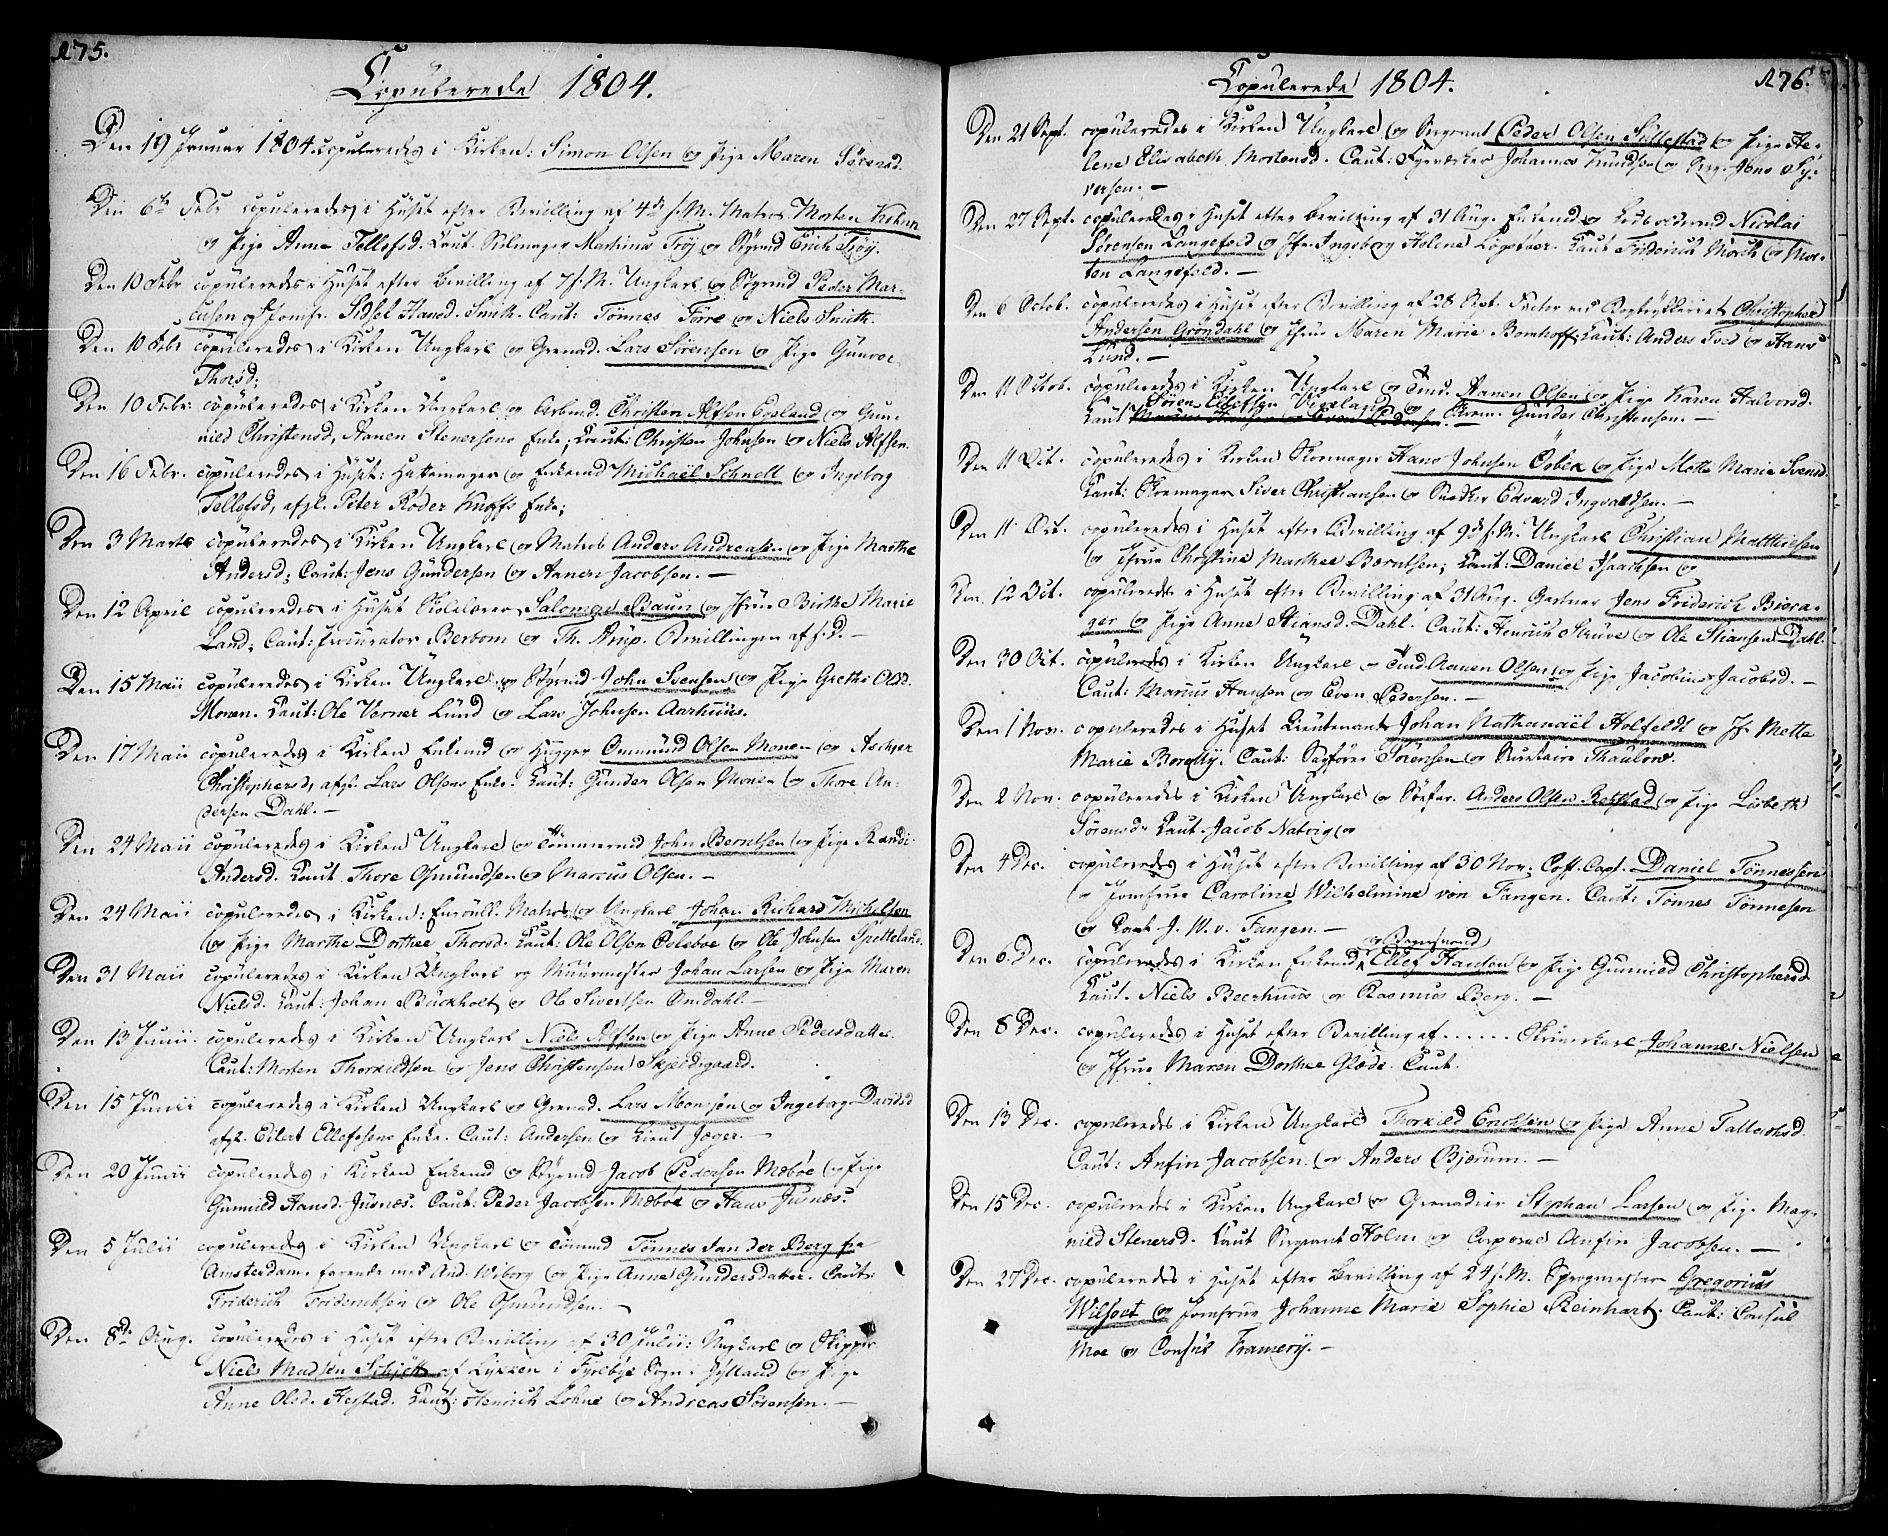 175.
Copulerede 1804.
Den 19 Januar 1804 copuleredes i Kirken: Simon Olsen og Pige Maren Sørensd.
Den 6te Febr copuleredes i Huset efter Bevilling af 4de s. M. Matros Morten
og Pige Anne Tellefsd. Caut. Seilmager Mathias Frøy og Styrmd Erich Frøy.
Den 10 Febr copuleredes i Huset efter Bevilling af 7 s. M. Ungkarl og Styrmd Peder Mar-
cusen og Jomfr. Sidsel Hansd. Smith. Caut: Tønnes Tørre og Niels Smith.
Den 10 Febr copuleredes i Kirken Ungkarl og Grenad. Lars Sørensen og Pige Gunvor
Thorsd:
Den 10 Febr: copuleredes i Kirken Ungkarl og Arbmd. Christen Alfsen Egeland og Gun-
nild Christensd, Aanen Stenersens Enke; Caut: Christen Johnsen og Niels Alfsen.
Den 16 Febr. copuleredes i Huset: Hattemager og Enkemd Michael Schnell og Ingeborg
Tellefsd, afgl. Peter Røder Knoffs Enke;
Den 3 Marts copuleredes i Kirken Ungkarl og Matros Anders Andreasen og Pige Marthe
Andersd; Caut: Jens Gundersen og Aanen Jacobsen. —
Den 12 April copuleredes i Huset Skolelærer Salomon Baun og Jfrue Birthe Marie
Land; Caut: Procurator Berbom og Th. Amp. Bevillingen af s. D. —
Den 15 Maii copuleredes i Kirken Ungkarl og Styrmd John Svensen og Pige Grethe Olsd.
Monen. Caut: Ole Verner Lund og Lars Johnsen Aarhuus.
Den 17 Maii copuleredes i Kirken Enkemd og Hugger Ommund Olsen Monen og Ascher
Christophersd, afgl. Lars Olsens Enke. Caut: Gunder Olsen Monen og Thore An-
dersen Dahl. —
Den 24 Maii copuleredes i Kirken Ungkarl og Tømmermd John Berntsen og Pige Randi
Andersd. Caut Thore Osmundsen og Marcus Olsen. —
Den 24 Maii copuleredes i Kirken: Enroull. Matros og Ungkarl Johan Richard Michelsen
og Pige Marthe Dorthee Thorsd. Caut: Ole Olsen Colsboe og Ole Johnsen Spetteland.
Den 31 Maii copuleredes i Kirken Ungkarl og Muurmester Johan Larsen og Pige Maren
Nielsd. Caut: Johan Buckholt og Ole Sivertsen Omdahl. —
Den 13 Junii. copuleredes i Kirken Ungkarl Niels Alfsen og Pige Anne Pedersdatter.
Caut: Morten Thorkildsen og Jens Christensen Skjeldsgaard.
Den 15 Junii copuleredes i Kirken Ungkarl og Grenad. Lars Monssen og Ingeborg Davidsd
afgl. Eilert Ellefsens Enke. Caut: Andersen og Lieut Jæger. —
Den 20 Junii copuleredes i Kirken Enkemd og Styrmd Jacob Pedersen Mæbøe og Pige
Gunnild Hansd. Jusnæs. Caut: Peder Jacobsen Mæbøe og Hans Jusnæs.
Den 5 Julii copuleredes i Kirken Ungkarl og Tømmd Tønnes van der Berg fra
Amsterdam, farende med And. Wiborg og Pige Anne Gundersdatter. Caut:
Friderich Fridericksen og Ole Osmundsen. —
Den 8de Aug. copuleredes i Huset efter Bevilling af 30 Julii: Ungkarl og Skipper
Niels Madsen Schjøtt af Lykken i Fyrebye Sogn i Jylland og Pige
Anne Olsd. Hestad. Caut: Henrich Lohne og Andreas Sørensen. —
176.
Copulerede 1804.
Den 21 Sept. copuleredes i Kirken Ungkarl og Sergeant Peder Olsen Sullestad og Pige He-
lene Elisabeth Mortensd. Caut: Fyrværker Johannes Knudsen og Serg. Jens Sy-
versen. —
Den 27 Sept. copuleredes i Huset efter Bevilling af 31 Aug. Enkemd og Nicolai
Sørensen Langefeld og Jfr. Ingeborg Helene Løgsther. Caut Friderich Mørch og Mor-
ten Langefeld. —
Den 6 Octob. copuleredes i Huset efter Bevilling af 28 Sept. Factor ved Bogtrykkeriet Christopher
Andersen Grøndahl og Jfrue Maren Marie Bomhoff. Caut: Anders Tved og Hans
Lund. —
Den 11 Octob. copuleredes i Kirken Ungkarl og Tmd. Aanen Olsen og Pige Karen Halvorsd.
Caut Søren Ellefsen Vigeland og Gunder Christensen. —
Den 11 Oct. copuleredes i Kirken Skomager Hans Johnsen Osben og Pige Mette Marie Svensd.
Caut: Skomager Siver Christiansen og Snedker Edvard Ingvaldsen. —
Den 11 Oct. copuleredes i Huset efter Bevilling af 9de s. M. Ungkarl Christian Matthiesen
og Jfrue Christine Marthee Berntsen; Caut: Daniel Isaachsen og
Den 12 Oct. copuleredes i Huset efter Bevilling af 31 Aug. Gartner Jens Friderich Biera-
ger og Pige Anne Stiansd. Dahl. Caut: Henrich Struve og Ole Stiansen Dahl.
Den 30 Oct. copuleredes i Kirken Ungkarl og Tmd Aanen Olsen og Pige Jacobine Jacobsd. —
Caut: Marius Hansen og Even Pedersen. —
Den 1 Nov. copuleredes i Huset Lieutenant Johan Nathanaël Holfeldt og Jfr Mette
Marie Boretty. Caut: Sagfører Sørensen og Secretaire Thaulow.
Den 2 Nov. copuleredes i Kirken Ungkarl og Søefar. Anders Olsen Retstad og Pige Lisbeth
Sørensd. Caut. Jacob Natvig og
Den 4 Dec. copuleredes i Huset efter Bevilling af 30 Nov: Coff. Capt. Daniel Tønnessen
og Jomfrue Caroline Wilhelmine von Fangen. Caut: Tønnes Tønnesen
og J. W. v. Fangen. —
Den 6. Dec. copuleredes i Kirken Enkemd og Borgermand Ellef Hansen og Pige Gunnild Christophersd.
Caut. Niels Beerhuus og Rasmus Berg. —
Den 8 Dec. copuleredes i Huset efter Bevilling af ...... Skriverkarl Johannes Nielsen
og Jfrue Maren Dorthee Gløde. Caut.
Den 13 Dec. copuleredes i Kirken Ungkarl Thorkild Erichsen og Pige Anne Tallachsd.
Caut: Anfin Jacobsen. og Anders Bjerum. —
Den 15 Dec. copuleredes i Kirken Ungkarl og Grenadier Stephan Larsen og Pige Mag-
nild Stenersd. Caut Sergeant Holm og Corporal Anfin Jacobsen. —
Den 27 Dec. copuleredes i Huset efter Bevilling af 24 s. M. Sprogmester Gregorius
Wilsoet og Jomfrue Johanne Marie Sophie Reinhart. Caut: Consul
Moe og Consul Framery. —